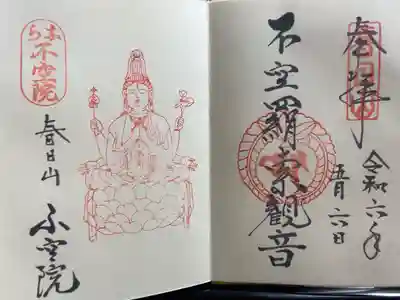 奉拝
春日山
令和六年
五月六日
不空羂索觀音
なら
不空院
春日山
不空院